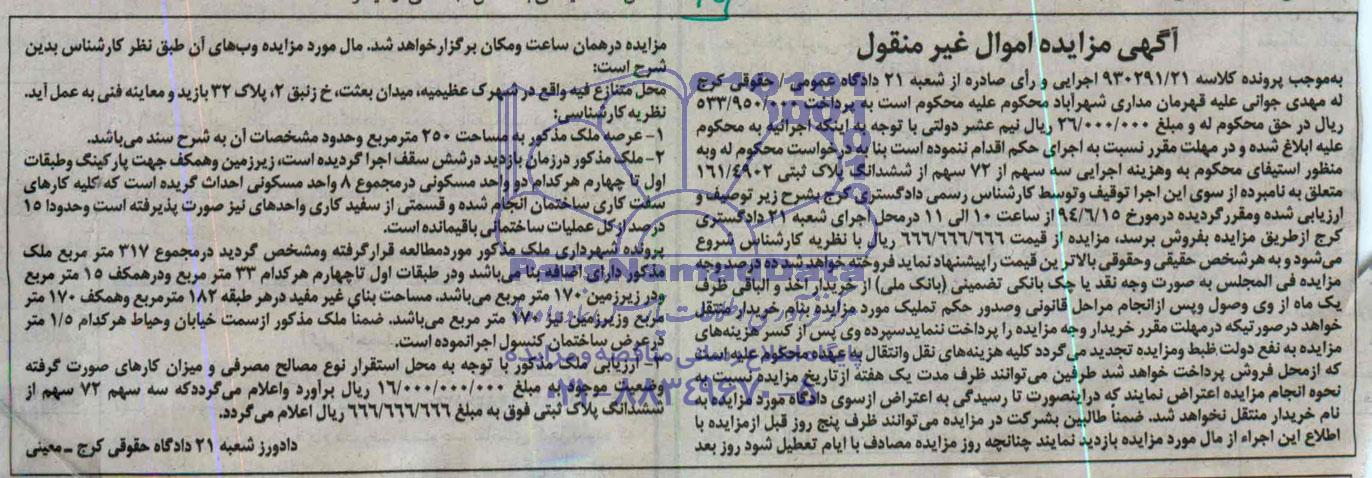 آگهی مزایده اموال غیر منقول
به‌موجب پرونده کلاسه ۹۳۰۲۹۱/۲۱ اجرایی و رأی صادره از شعبه ۲۱ دادگاه عمومی / حقوقی کرج
له مهدی جوانی علیه قهرمان مداری شهرآباد محکوم علیه محکوم است به پرداخت ۵۳۳/۹۵۰/۰۰۰
ریال در حق محکوم له و مبلغ ۲۶/۰۰۰/۰۰۰ ریال نیم عشر دولتی با توجه به اینکه اجرائیه به محکوم
علیه ابلاغ شده و در مهلت مقرر نسبت به اجرای حکم اقدام ننموده است بنا به درخواست محکوم له وبه
منظور استیفای محکوم به وهزینه اجرایی سه سهم از ۷۲ سهم از ششدانگ پلاک ثبتی ۱۶۱/۴۹۰۲
متعلق به نامبرده از سوی این اجرا توقیف وتوسط کارشناس رسمی دادگستری کرج بشرح زیر توصیف و
ارزیابی شده ومقررگردیده درمورخ ۹۴/۶/۱۵ از ساعت ۱۰ الی ۱۱ درمحل اجرای شعبه ۲۱ دادگستری
کرج ازطریق مزایده بفروش برسد، مزایده از قیمت ۶۶۶/۶۶۶/۶۶۶ ریال با نظریه کارشناس شروع
می‌شود و به هرشخص حقیقی وحقوقی بالاترین قیمت را پیشنهاد نماید فروخته خواهد شد ده درصد وجه
مزایده فی المجلس به صورت وجه نقد یا چک بانکی تضمینی (بانک ملی) از خریدار اخذ و الباقی ظرف
یک ماه از وی وصول وپس ازانجام مراحل قانونی وصدور حکم تملیک مورد مزایده بنام خریدار منتقل
خواهد درصورتیکه درمهلت مقرر خریدار وجه مزایده را پرداخت ننماید سپرده وی پس از کسر هزینه‌های
مزایده به نفع دولت ضبط ومزایده تجدید می‌گردد کلیه هزینه‌های نقل وانتقال به عهده محکوم علیه است
که ازمحل فروش پرداخت خواهد شد طرفین می‌توانند ظرف مدت یک هفته ازتاریخ مزایده نسبت به
نحوه انجام مزایده اعتراض نمایند که دراینصورت تا رسیدگی به اعتراض ازسوی دادگاه مورد مزایده به
نام خریدار منتقل نخواهد شد. ضمناً طالبین بشرکت در مزایده می‌توانند ظرف پنج روز قبل ازمزایده با
اطلاع این اجراء از مال مورد مزایده بازدید نمایند چنانچه روز مزایده مصادف با ایام تعطیل شود روز بعد
مزایده درهمان ساعت ومکان برگزارخواهد شد. مال مورد مزایده وب‌های آن طبق نظر کارشناس بدین
شرح است:
محل متنازع فیه واقع در شهرک عظیمیه، میدان بعثت، خ زنبق ۲، پلاک ۳۲ بازید و معاینه فنی به عمل آید.
نظریه کارشناسی:
۱- عرصه ملک مذکور به مساحت ۲۵۰ مترمربع وحدود مشخصات آن به شرح سند می‌باشد.
۲- ملک مذکور درزمان بازدید درشش سقف اجرا گردیده است، زیرزمین وهمکف جهت پارکینگ وطبقات
اول تا چهارم هرکدام دو واحد مسکونی درمجموع ۸ واحد مسکونی احداث گریده است که کلیه کارهای
سفت کاری ساختمان انجام شده و قسمتی از سفید کاری واحدهای نیز صورت پذیرفته است وحدودا ۱۵
درصد ازکل عملیات ساختمانی باقیمانده است.
پرونده شهرداری ملک مذکور موردمطالعه قرارگرفته ومشخص گردید درمجموع ۳۱۷ متر مربع ملک
مذکور دارای اضافه بنا می‌باشد ودر طبقات اول تاچهارم هرکدام ۳۳ متر مربع ودرهمکف ۱۵ متر مربع
ودر زیرزمین ۱۷۰ متر مربع می‌باشد. مساحت بنای غیر مفید درهر طبقه ۱۸۲ مترمربع وهمکف ۱۷۰ متر
مربع وزیرزمین نیز ۱۷۰ متر مربع می‌باشد. ضمنا ملک مذکور ازسمت خیابان وحیاط هرکدام ۱/۵ متر
درعرض ساختمان کنسول اجرانموده است.
۳- ارزیابی ملک مذکور با توجه به محل استقرار نوع مصالح مصرفی و میزان کارهای صورت گرفته
وضعیت موجود به مبلغ ۱۶/۰۰۰/۰۰۰/۰۰۰ ریال برآورد واعلام می‌گرددکه سه سهم ۷۲ سهم از
ششدانگ پلاک ثبتی فوق به مبلغ ۶۶۶/۶۶۶/۶۶۶ ریال اعلام می‌گردد.
دادورز شعبه ۲۱ دادگاه حقوقی کرج ـ معینی
ParsNamadData
پایگاه اطلاع رسانی مناقصه و مزایده
۰۲۱-۸۸۳۴۹۶۷۰-۵